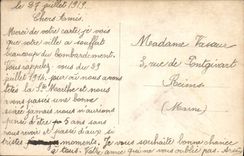 le 27 juillet 1919.
Chers Amis.
Merci de votre carte, je vois
que votre ville a souffert
beaucoup des bombardement.
Vous rappelez vous du 29
juillet 1914. par où nous avons
étés la Ste Marthe et nous
nous passé une bonne
année jamais nous n'aurions
d'être 5 ans sans
nous revoir et passé d'aussi
tristes moments. Je vous souhaite bonne chance
à tous. Votre amie qui ne vous oublié pas.
Madame
3, rue de
Reims
(Marne)